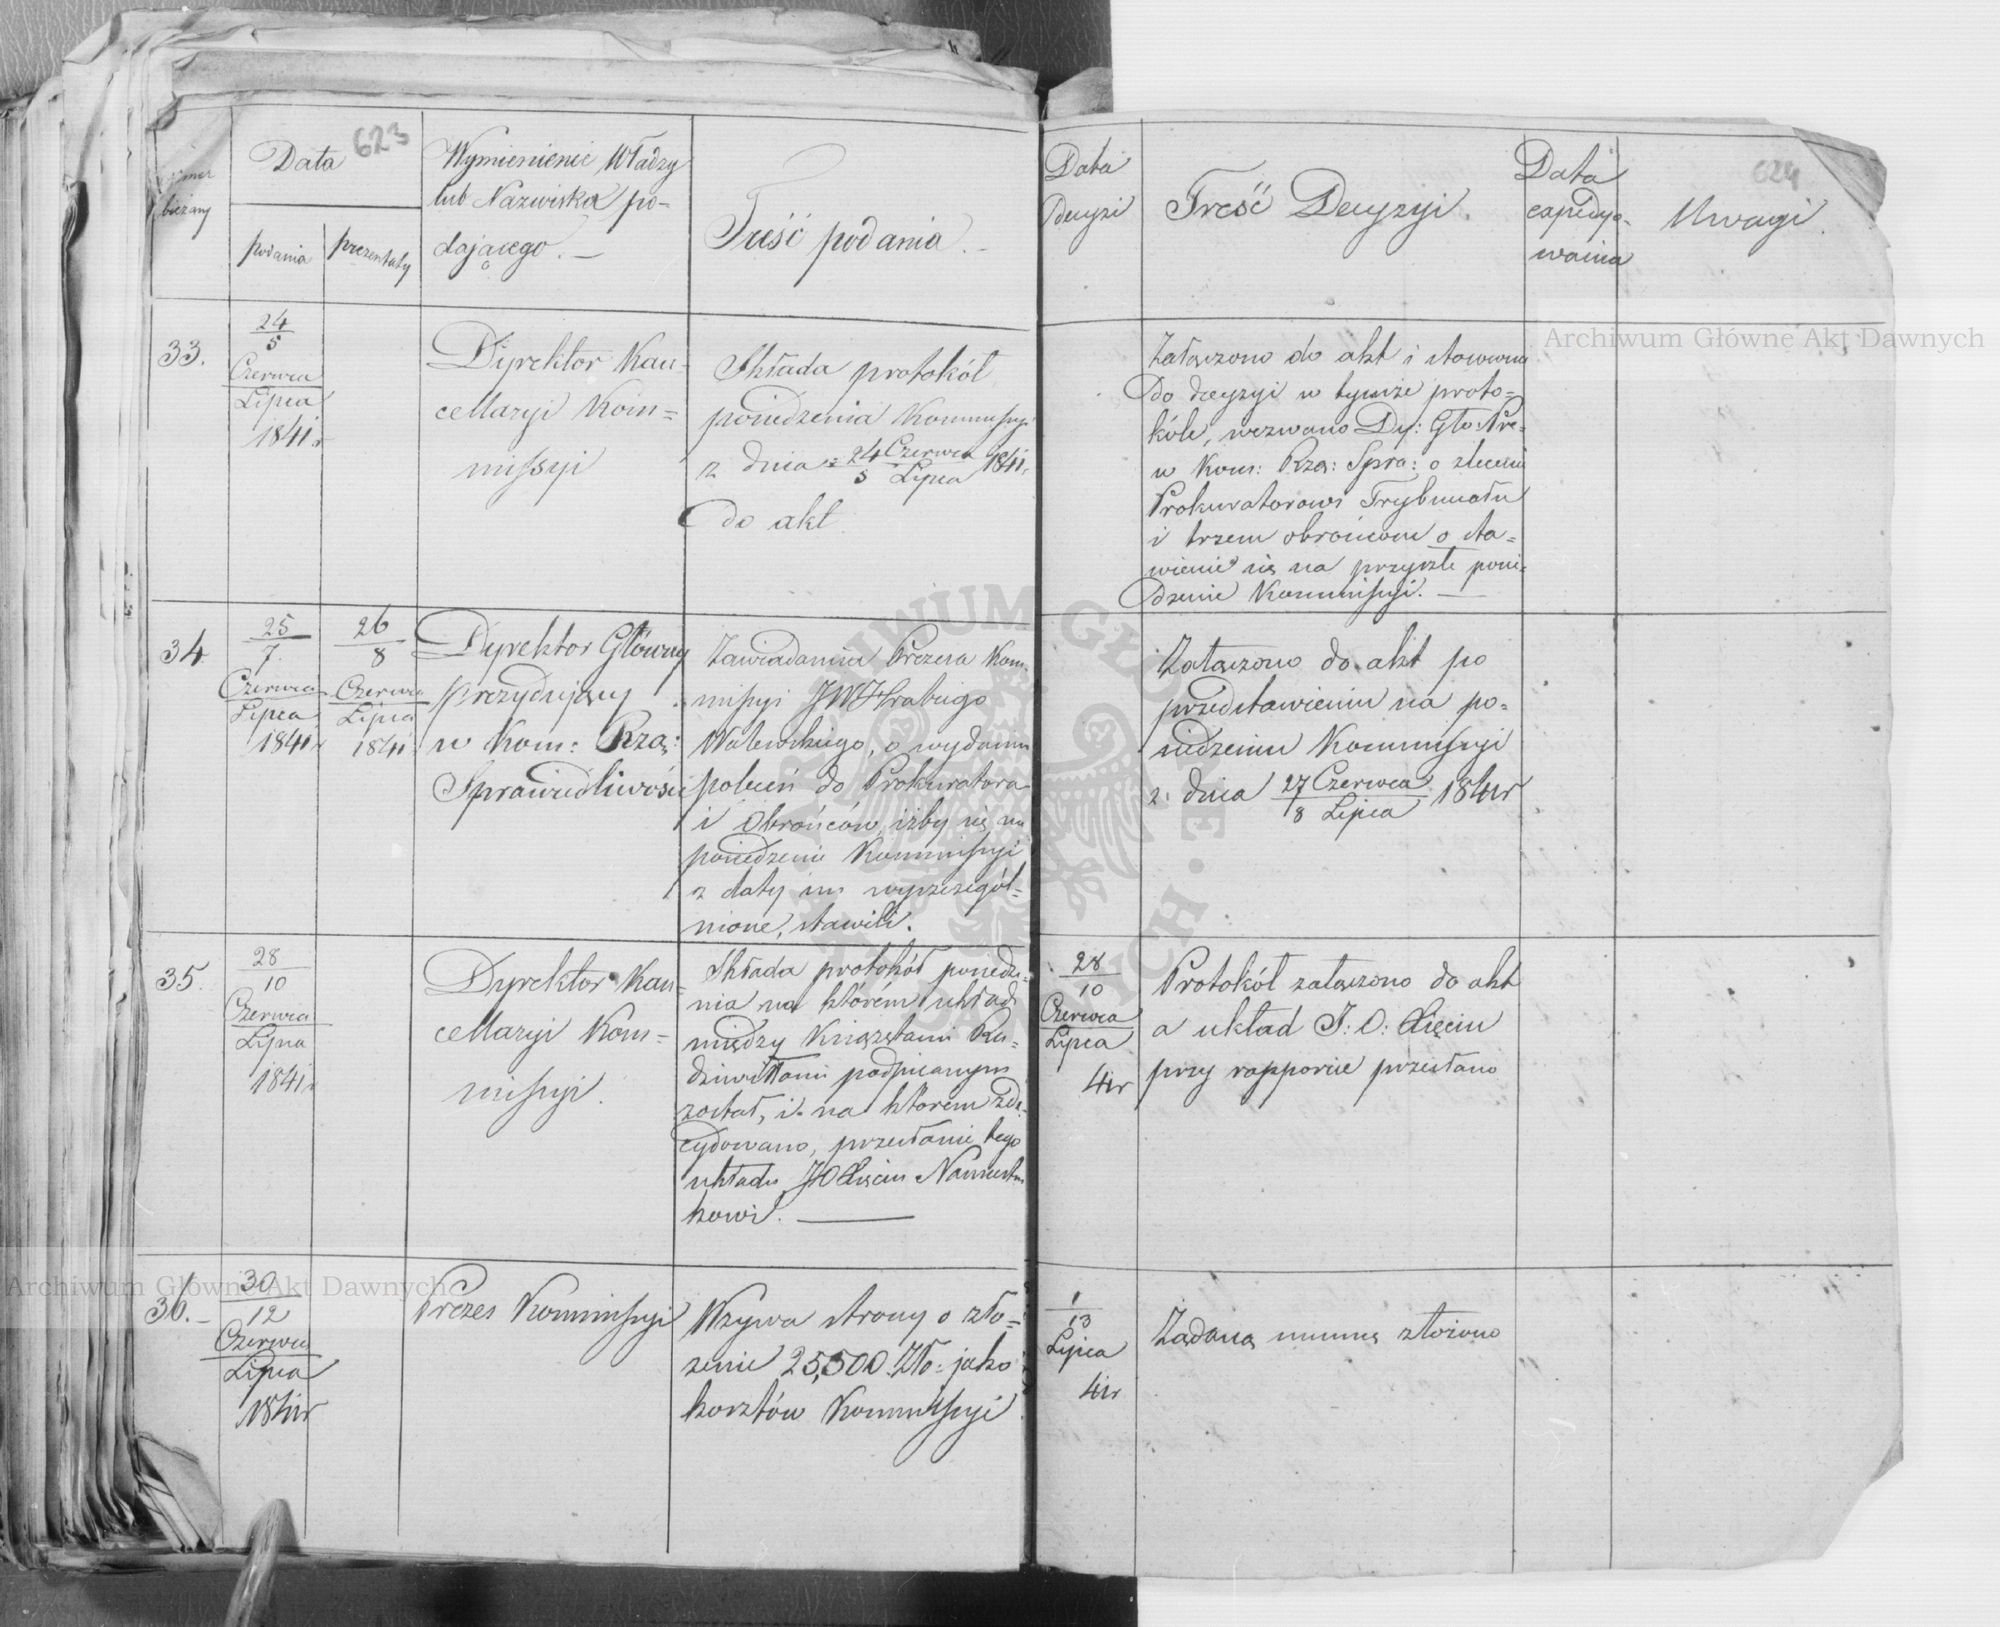 623
Numer
bieżący
Data
podania
prezentaty
Wymienienie Władzy
lub Nazwiska po-
dającego. —
Treść podania. —
Data
Decyzi
Treść Decyzyi.
Data
expedyo-
wania
624
Uwagi.
Archiwum Główne Akt Dawnych
33.
24
5
Czerwca
Lipca
1841 r
Dyrektor Kan-
cellaryi Kom=
missyi
Składa protokół
posiedzenia Kommissyi
z dnia 24 Czerwca 1841 r.
5 Lipca
Do akt
Załączono do akt i stosownie
Do decyzyi w tymże proto=
kóle, wezwano Dy: Głó: Pre=
w Kom: Rzą: Spra: o zlecenie
Prokuratorowi Trybunału
i trzem obrońcom o sta=
wienie się na przyszłe posie-
dzenie Kommissyi. —
34
25
7
Czerwca
Lipca
1841 r
26
8
Czerwca
Lipca
1841
Dyrektor Główny
Prezydujący
w Kom: Rzą:
Sprawiedliwości
Zawiadamia Prezesa Kom-
missyi JW Hrabiego
Walewskiego, o wydaniu
poleceń do Prokuratora
i Obrońców, iżby się na
posiedzenie Kommissyi
z daty im wyszczegól=
nione, stawili.
Załączono do akt po
przedstawieniu na po-
siedzeniu Kommissyi
z dnia 27 Czerwca 1841 r
8 Lipca
35.
28
10
Czerwca
Lipca
1841 r
Dyrektor Kan-
cellaryi Kom=
missyi.
Składa protokół posiedze-
nia na którém układ
między Książętami Ra-
dziwiłłami podpisanym
został, i na którem zde-
cydowano, przesłanie tego
układu JO Xięciu Namiestni
kowi. —
28
10
Czerwca
Lipca
41 r
Protokół załączono do akt
a układ J: O: Xięciu
przy rapporcie przesłano
36. —
30
12
Czerwca
Lipca
1841 r
Prezes Kommissyi
Wzywa strony o zło-
żenie 25,500 Zło: jako
kosztów Kommissyi
1
13
Lipca
41 r
Żądaną summę złożono
Archiwum Główne Akt Dawnych